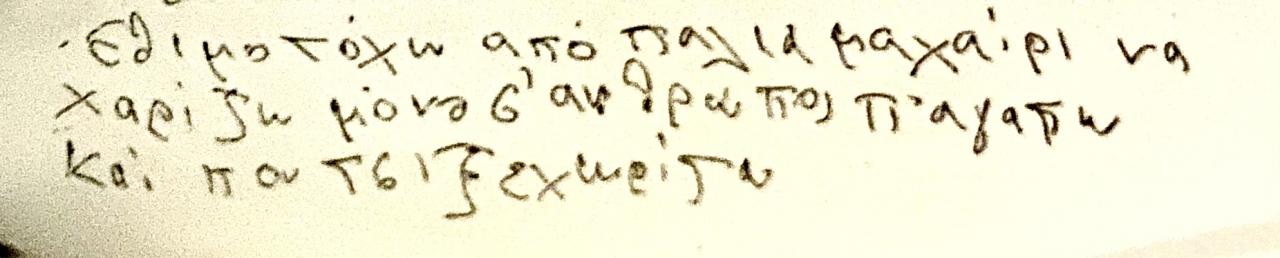 Εθιμοτόχω από παλιά μαχαίρι να
χαρίζω μόνο σ' ανθρώπος π' αγαπω
και που τσι ξεχωρίζω